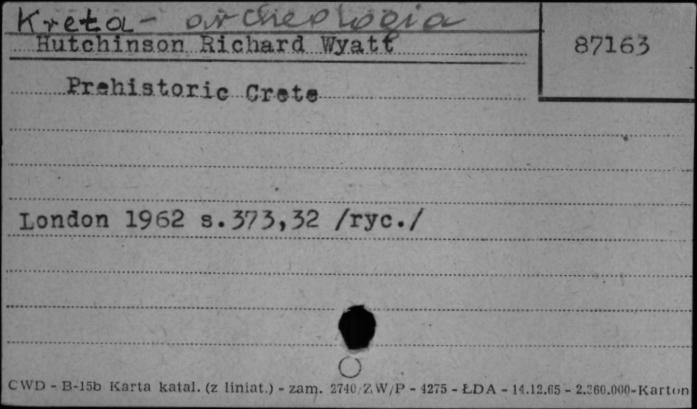 Kreta - archeologia
Hutchinson Richard Wyatt
87163
Prehistoric Crete
London 1962 s.373,32 /ryc./
CWD - B-15b Karta katal. (z liniat.) - zam. 2740/ZW/P - 4275 - ŁDA - 14.12.65 - 2.360.000-Karton